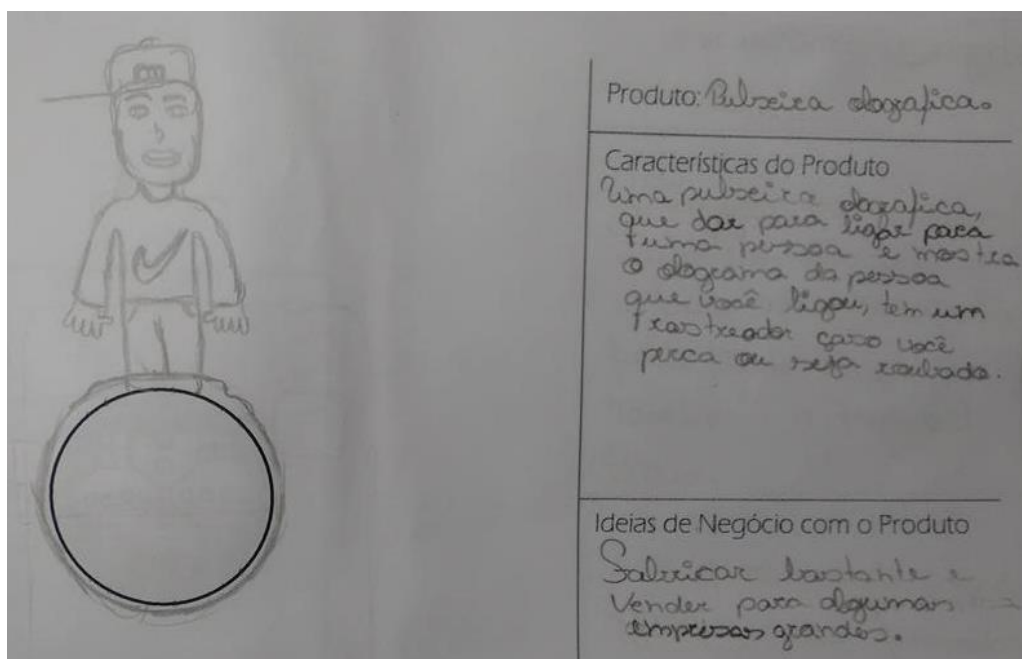 Produto: Pulseira olografica.
Características do Produto
Uma pulseira olografica,
que dar para ligar para
uma pessoa e mostra
o olograma da pessoa
que você ligou, tem um
rastreador caso você
perca ou seja roubado.
Ideias de Negócio com o Produto
Fabricar bastante e
Vender para algumas
empresas grandes.